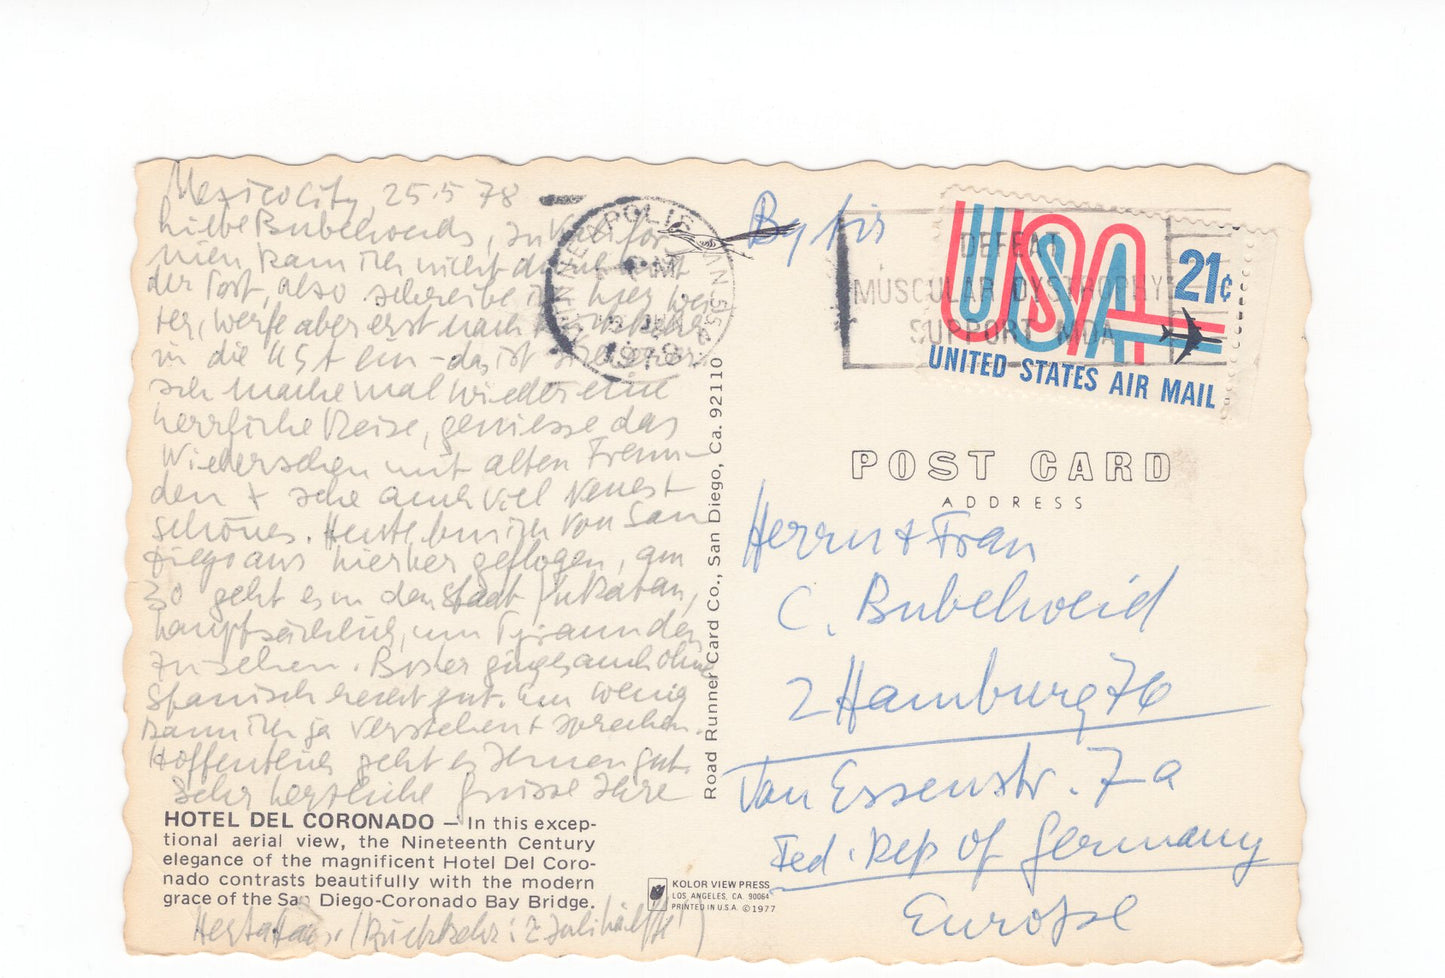 Mexico City, 25.5.78
Liebe Bubelweids, in Kalifor-
nien kam ich nicht dazu mit
der Post, also schreibe ich hier wei-
ter, werfe aber erst nach
in die USA ein – das ist sicherer.
Ich mache mal wieder eine
herrliche Reise, geniesse das
Wiedersehen mit alten Freun-
den + sehe auch viel Neues +
schönes. Heute bin ich von San
Diego aus hierher geflogen, am
30 geht es in den Staat Yukatan,
hauptsächlich, um Pyramiden
zu sehen. Bisher ging es auch ohne
Spanisch recht gut. Ein wenig
kann ich ja verstehen + sprechen.
Hoffentlich geht es Ihnen gut.
Sehr herzliche Grüsse Ihre
HOTEL DEL CORONADO — In this excep-
tional aerial view, the Nineteenth Century
elegance of the magnificent Hotel Del Coro-
nado contrasts beautifully with the modern
grace of the San Diego-Coronado Bay Bridge.
Herta (Rückkehr: 2. Julihälfte)
Road Runner Card Co., San Diego, Ca. 92110
KOLOR VIEW PRESS
LOS ANGELES, CA. 90064
PRINTED IN U.S.A. ©1977
MINNEAPOLIS MN 554
PM
1978
By Air
DEFEAT
MUSCULAR DYSTROPHY
SUPPORT MDA
USA 21¢
UNITED STATES AIR MAIL
POST CARD
ADDRESS
Herrn + Frau
C. Bubelweid
2 Hamburg 76
Van Essenstr. 7a
Fed. Rep of Germany
Europe